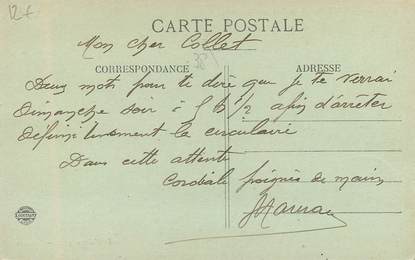 12f
CARTE POSTALE
Mon cher Collet
CORRESPONDANCE
ADRESSE
Deux mots pour te dire que je te verrai
Dimanche soir à 8 h 1/2 afin d'arrêter
définitivement la circulaire
Dans cette attente
Cordiale poignée de main